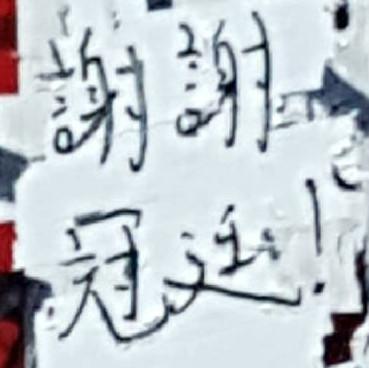 謝謝
冠廷!